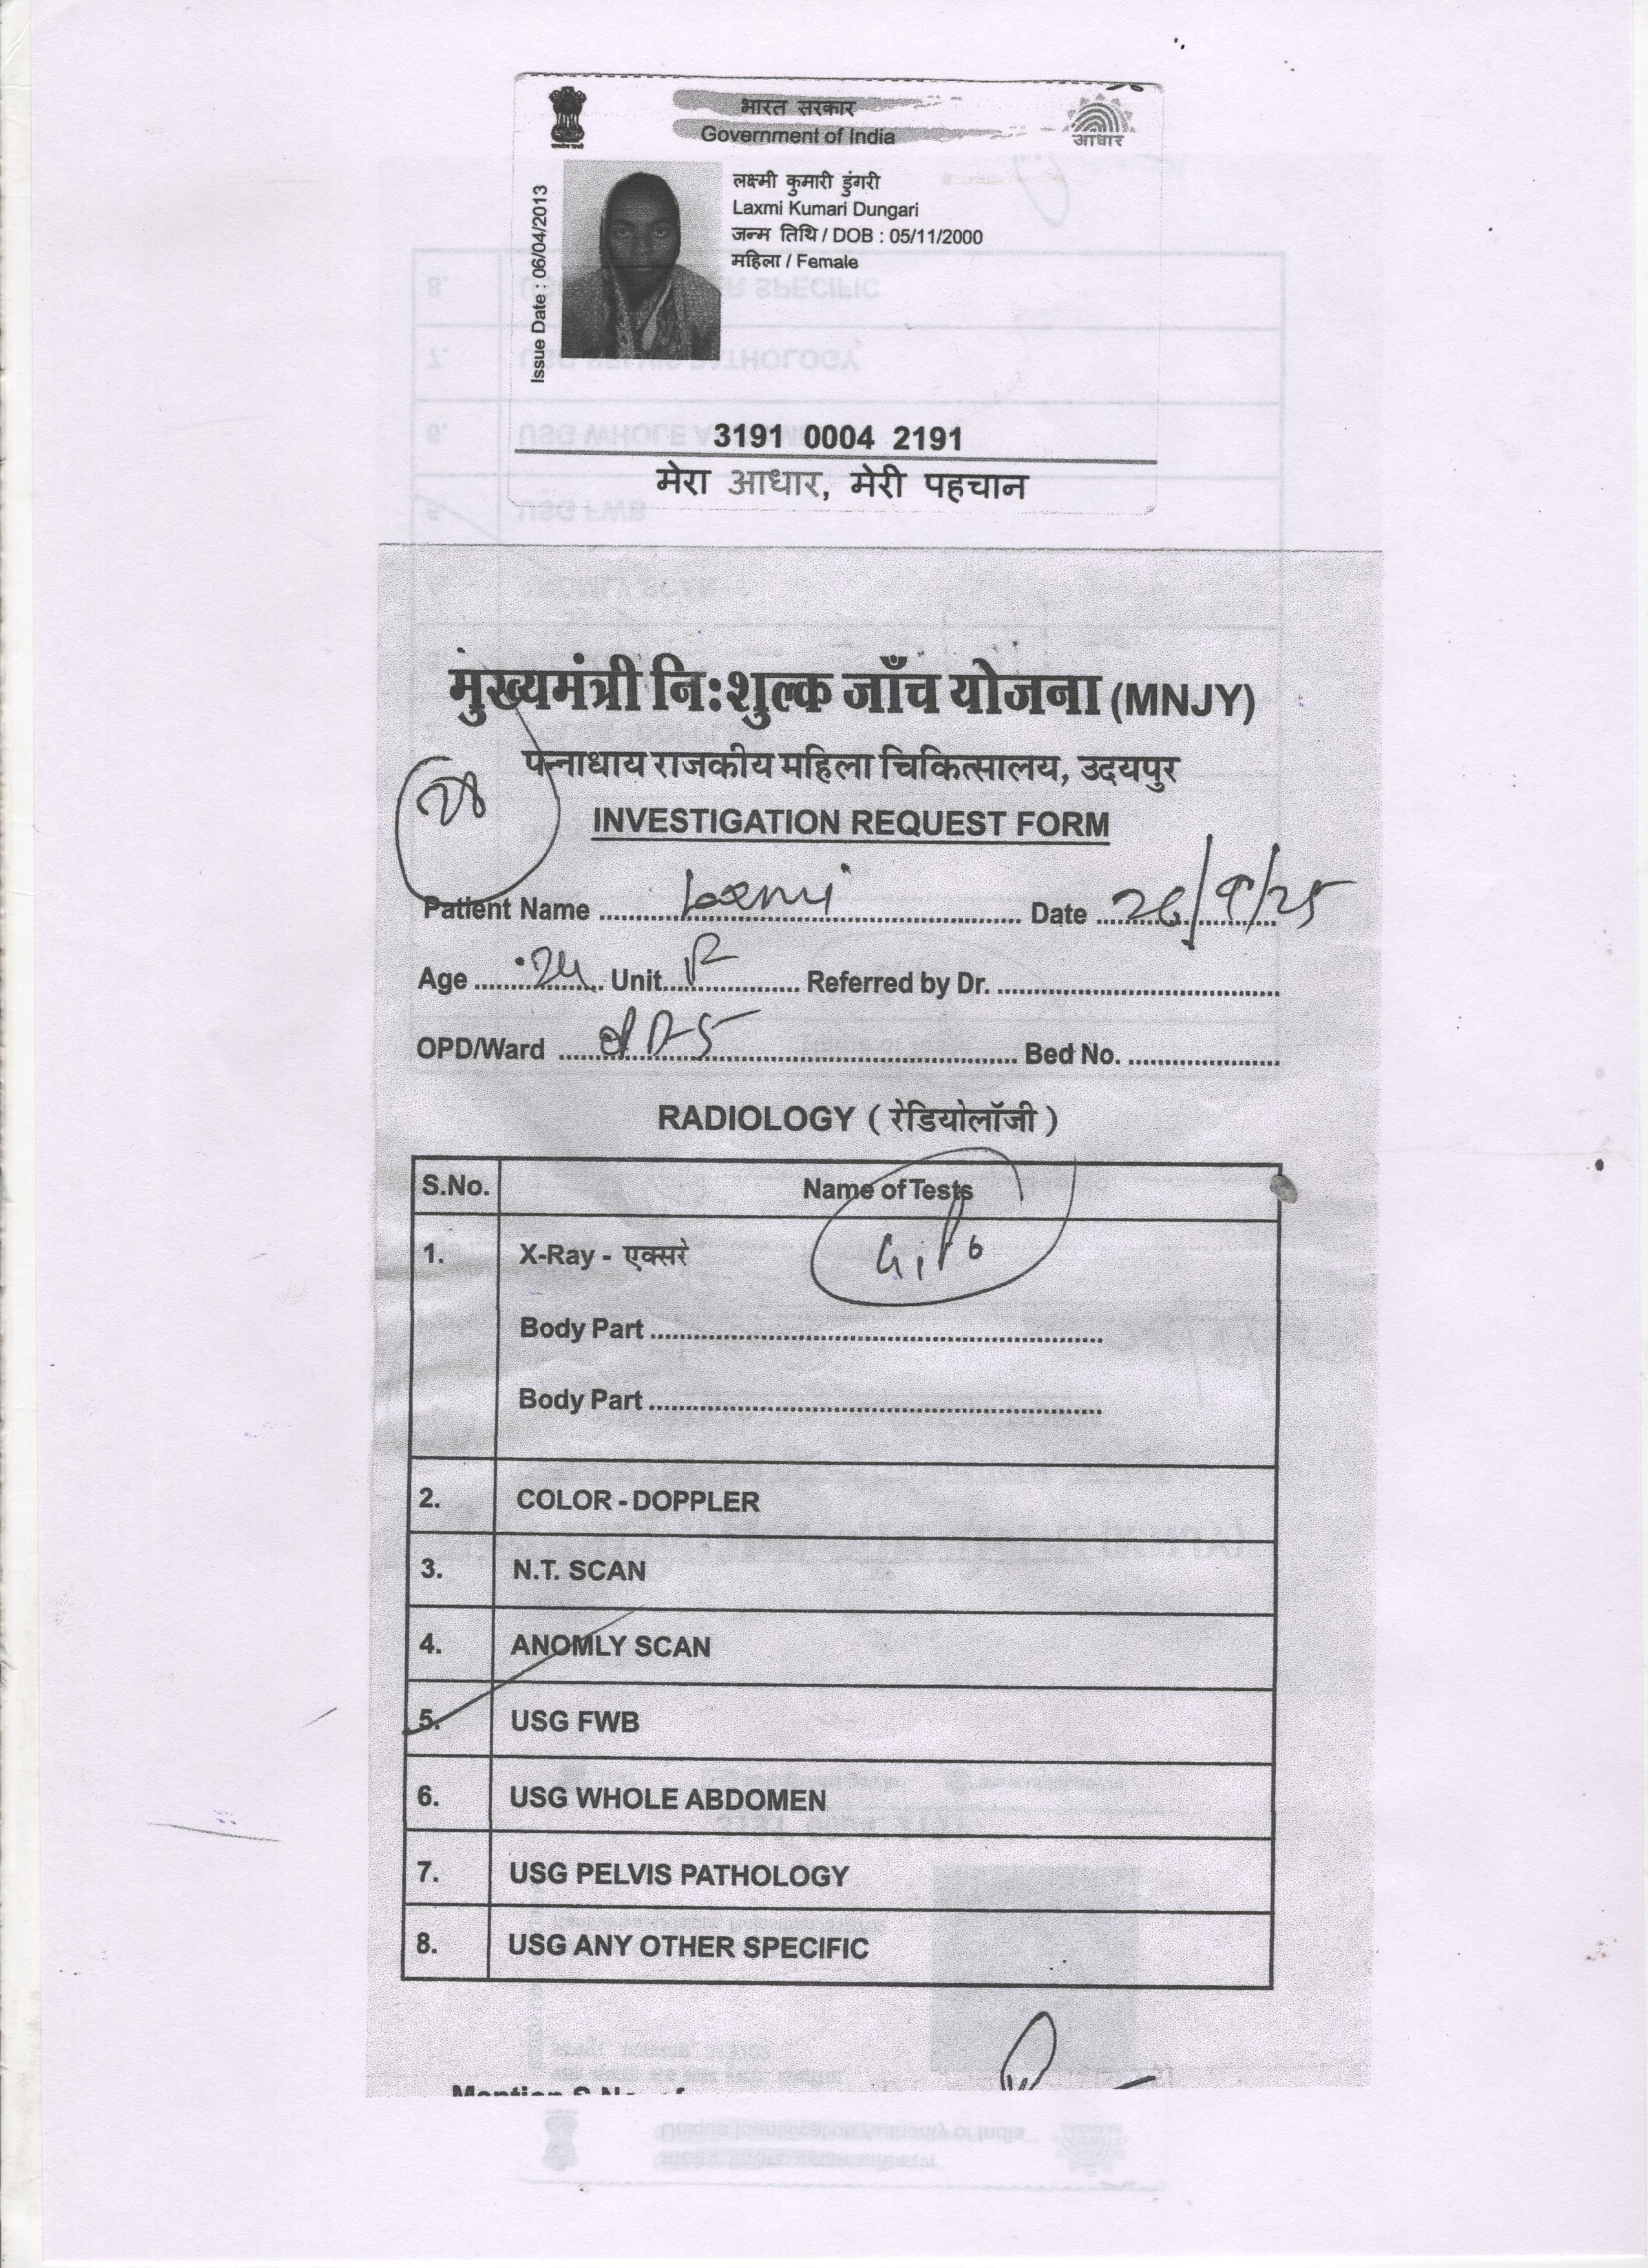 भारत सरकार
Government of India
आधार
Issue Date : 06/04/2013
लक्ष्मी कुमारी डुंगरी
Laxmi Kumari Dungari
जन्म तिथि / DOB : 05/11/2000
महिला / Female
3191 0004 2191
मेरा आधार, मेरी पहचान
मुख्यमंत्री नि:शुल्क जाँच योजना (MNJY)
पन्नाधाय राजकीय महिला चिकित्सालय, उदयपुर
INVESTIGATION REQUEST FORM
Patient Name Laxmi Date 26/9/25
Age 24 Unit Referred by Dr.
OPD/Ward Bed No.
RADIOLOGY ( रेडियोलॉजी )
S.No. Name of Tests
1. X-Ray - एक्सरे
Body Part
Body Part
2. COLOR - DOPPLER
3. N.T. SCAN
4. ANOMLY SCAN
5. USG FWB
6. USG WHOLE ABDOMEN
7. USG PELVIS PATHOLOGY
8. USG ANY OTHER SPECIFIC